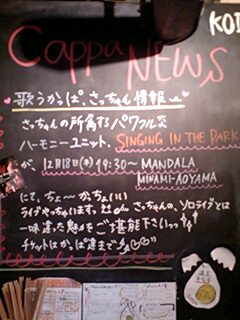 KOI
Cappa
NEWS
歌うかっぱ、さっちゃん情報
さっちゃんの所属するパワフルな
ハーモニーユニット、SINGING IN THE PARK
が、12月18日(木)19:30〜MANDALA
MINAMI-AOYAMA
にて、ちょ〜かっちょいい
ライブやっちゃいます。さっちゃんの、ソロライブとは
一味違った魅力をご堪能下さいっ
チケットはかっぱ達まで